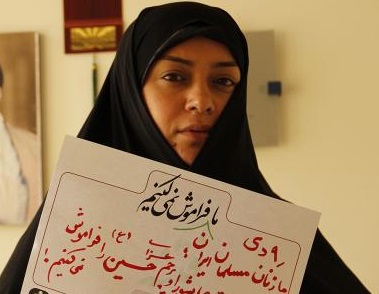 ما فراموش نمی‌کنیم
۹ دی
ما زنان مسلمان ایران
حسین (ع) را فراموش
نمی کنیم!